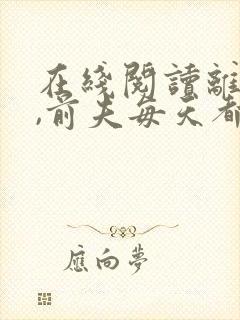 在綫閱讀離
,前夫每天都
應向夢